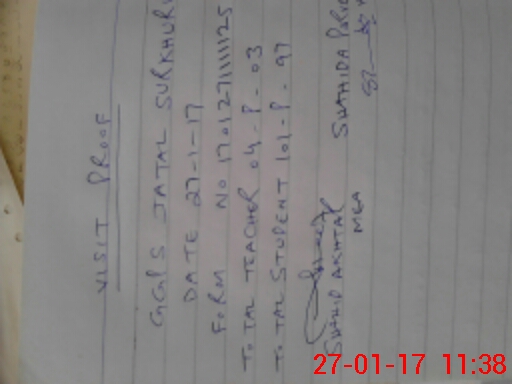 VISIT PROOF
GGPS JATAL SURKHURU
DATE 27-1-17
FORM NO 170127111125
TOTAL TEACHER 04-P-03
TOTAL STUDENT 101-P-97
SHAHID AKHTAR
MEA
SHAHIDA
27-01-17 11:38